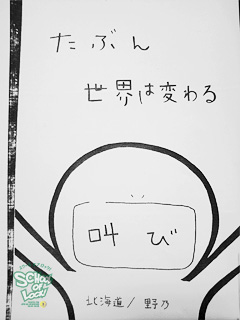 たぶん
世界は変わる
叫び
SCHOOL
OF
LOCK!
北海道/野乃